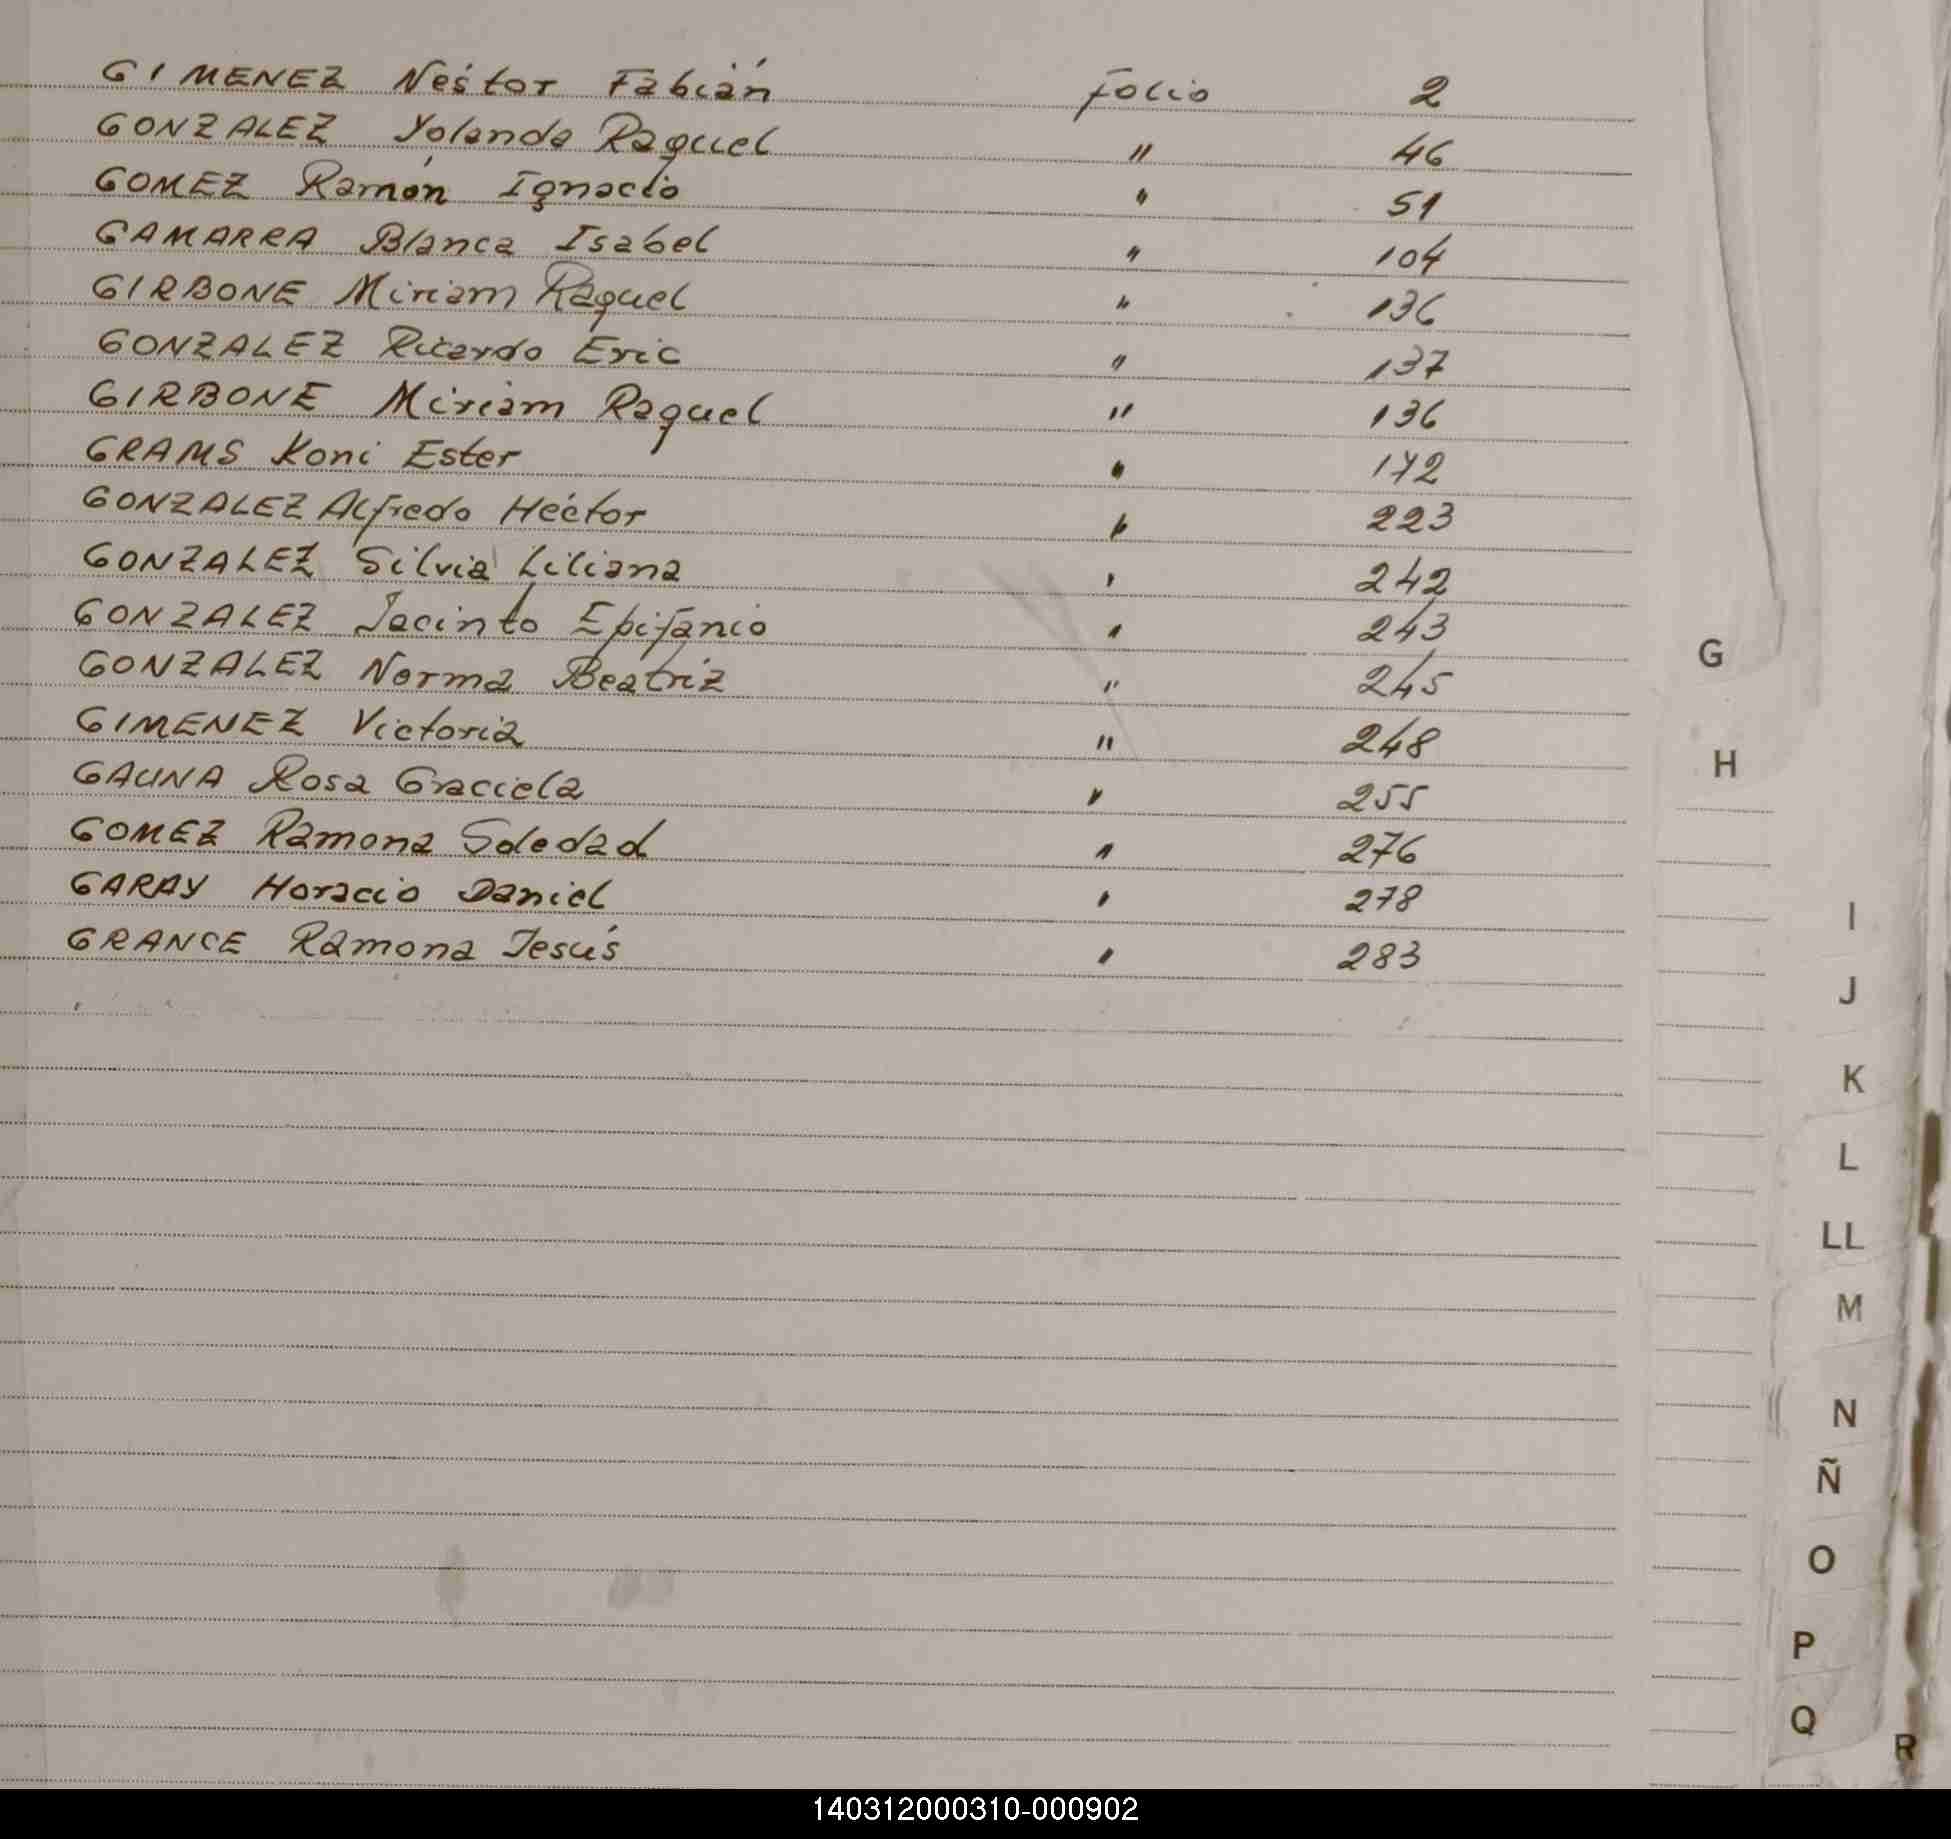 GIMENEZ Néstor Fabián Folio 2
GONZALEZ Yolanda Raquel " 46
GOMEZ Ramón Ignacio " 51
GAMARRA Blanca Isabel " 104
GIRBONE Miriam Raquel " 136
GONZALEZ Ricardo Eric " 137
GIRBONE Miriam Raquel " 136
GRAMS Koni Ester " 172
GONZALEZ Alfredo Héctor " 223
GONZALEZ Silvia Liliana " 242
GONZALEZ Jacinto Epifanio " 243
GONZALEZ Norma Beatriz " 245
GIMENEZ Victoria " 248
GAUNA Rosa Graciela " 255
GOMEZ Ramona Soledad " 276
GARAY Horacio Daniel " 278
GRANCE Ramona Jesús " 283
G
H
I
J
K
L
LL
M
N
Ñ
O
P
Q
R
140312000310-000902